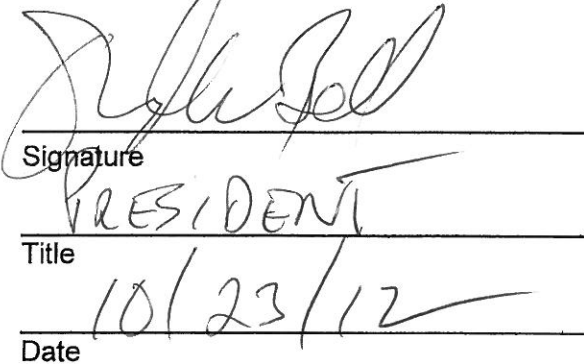 Signature
PRESIDENT
Title
10/23/12
Date